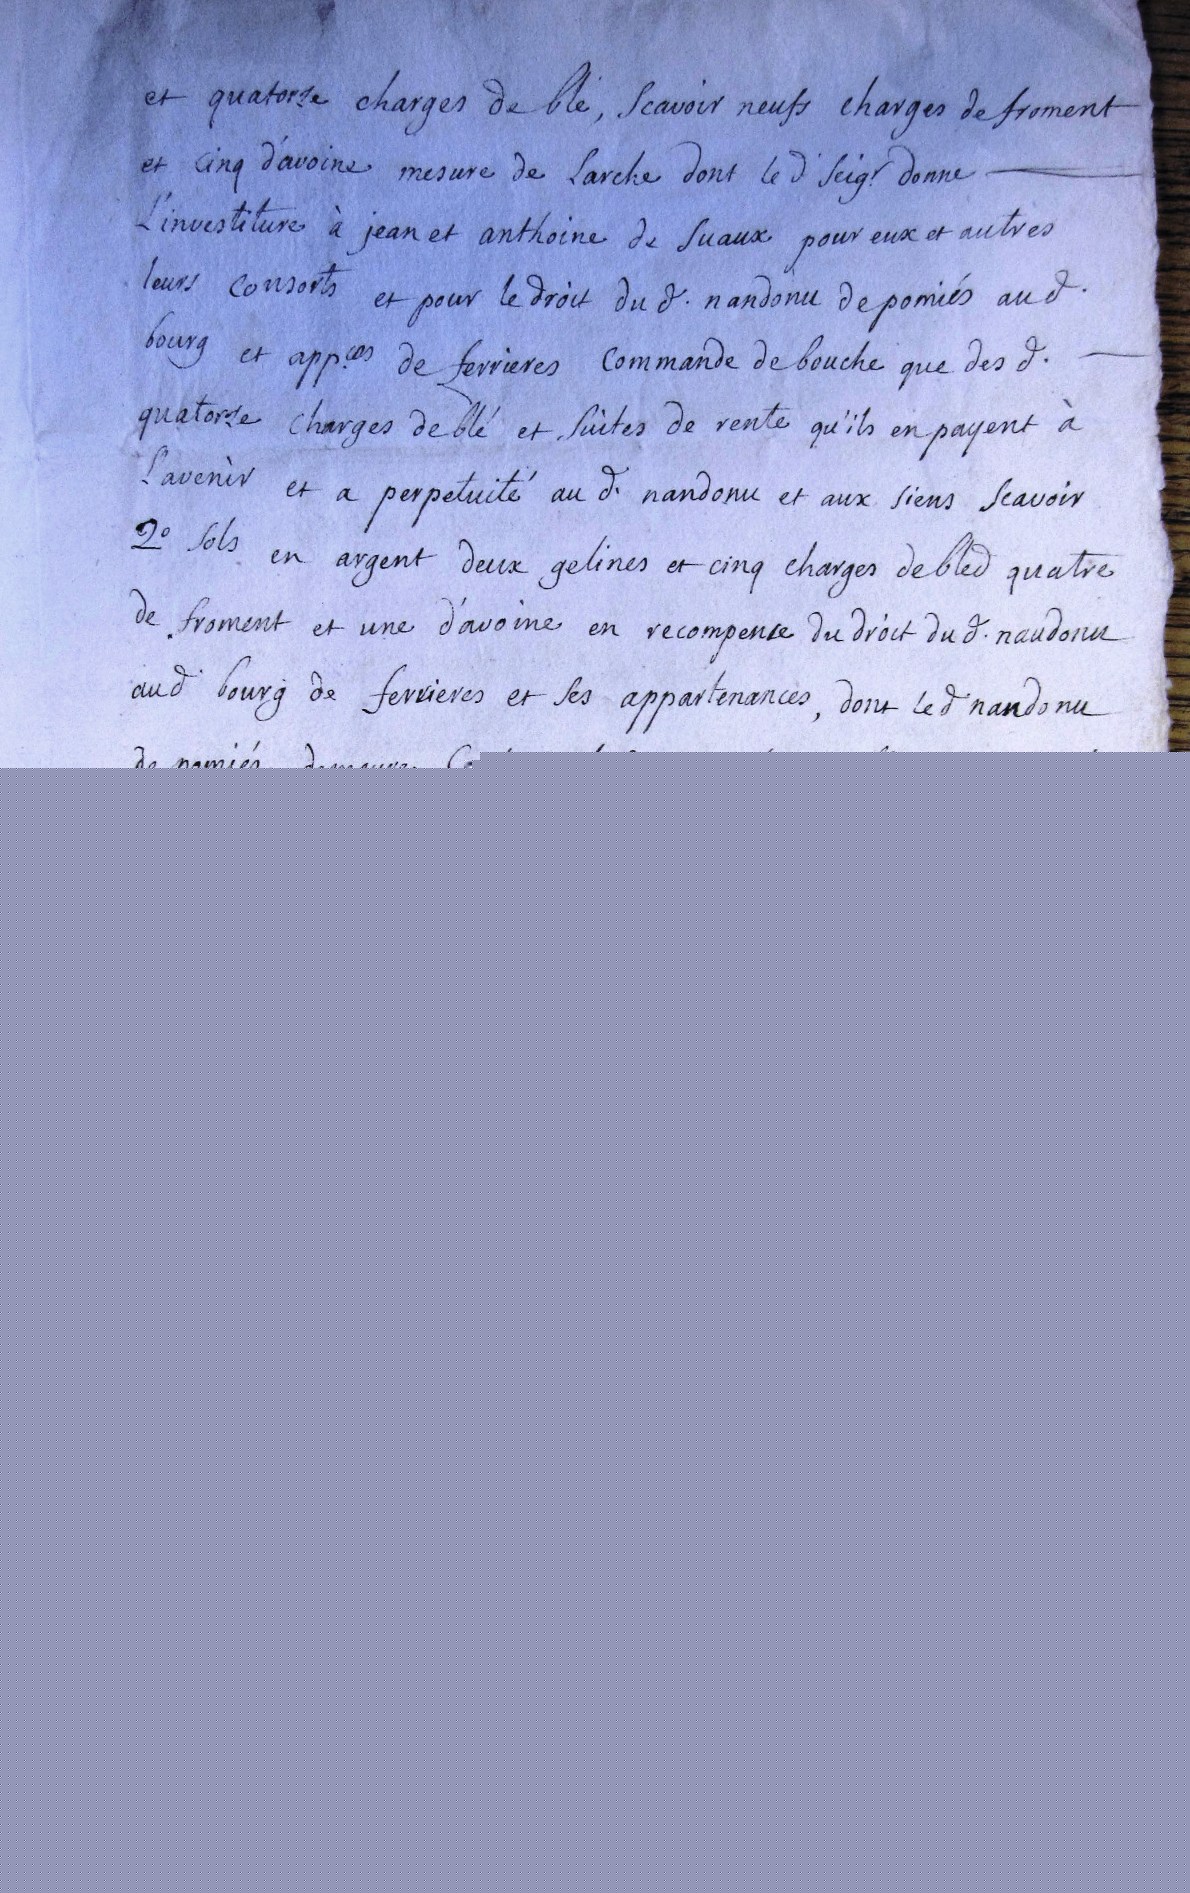 et quatorze charges de blé, scavoir neufs charges de froment
et cinq d'avoine mesure de Larche dont le d seigr donne
L'investiture à jean et anthoine de suaux pour eux et autres
leurs consorts et pour le droit du d. nandonu de pomiés au d.
bourg et app.ces de ferrieres commande de bouche que des d.
quatorze charges de blé et suites de rente qu'ils en payent à
L'avenir et a perpetuité au d. nandonu et aux siens scavoir
20 sols en argent deux gelines et cinq charges de bled quatre
de froment et une d'avoine en recompense du droit du d. naudonu
au d bourg de ferrieres et ses appartenances, dont le d nandonu
de pomiés demeure